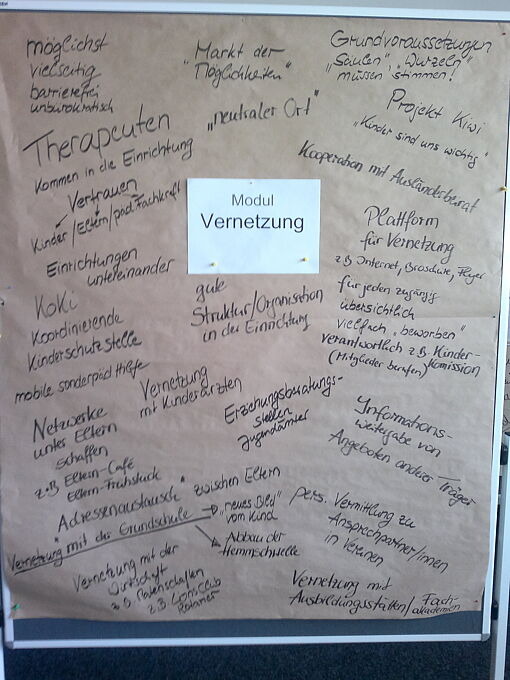 möglichst
vielseitig
barrierefrei
unbürokratisch
"Markt der
Möglichkeiten"
Grundvoraussetzungen
"Säulen", "Wurzeln"
müssen stimmen!
"neutraler Ort"
Projekt Kiwi
"Kinder sind uns wichtig"
Therapeuten
kommen in die Einrichtung
Vertrauen
Kinder/Eltern/päd. Fachkraft
Kooperation mit Ausländerbeirat
Modul
Vernetzung
Plattform
für Vernetzung
z.B Internet, Broschüre, Flyer
für jeden zugängig
übersichtlich
vielfach "beworben"
verantwortlich z.B. Kinder-
(Mitglieder berufen) komission
Einrichtungen
untereinander
gute
Struktur/Organisation
in der Einrichtung
KoKi
Koordinierende
Kinderschutzstelle
mobile sonderpäd Hilfe
Vernetzung
mit Kinderärzten
Erziehungsberatungs-
stellen
Jugendämter
Informations-
weitergabe von
Angeboten anderer Träger
Netzwerke
unter Eltern
schaffen
z.B Eltern-Café
Eltern-Frühstück
"Adressenaustausch" zwischen Eltern
Vernetzung mit der Grundschule
"neues Bild"
vom Kind
Abbau der
Hemmschwelle
pers. Vermittlung zu
Ansprechpartner/innen
in Vereinen
Vernetzung mit der
Wirtschaft
z.B. Patenschaften
z.B. Lions Club
Rotarier
Vernetzung mit
Ausbildungsstätten/Fach-
akademien